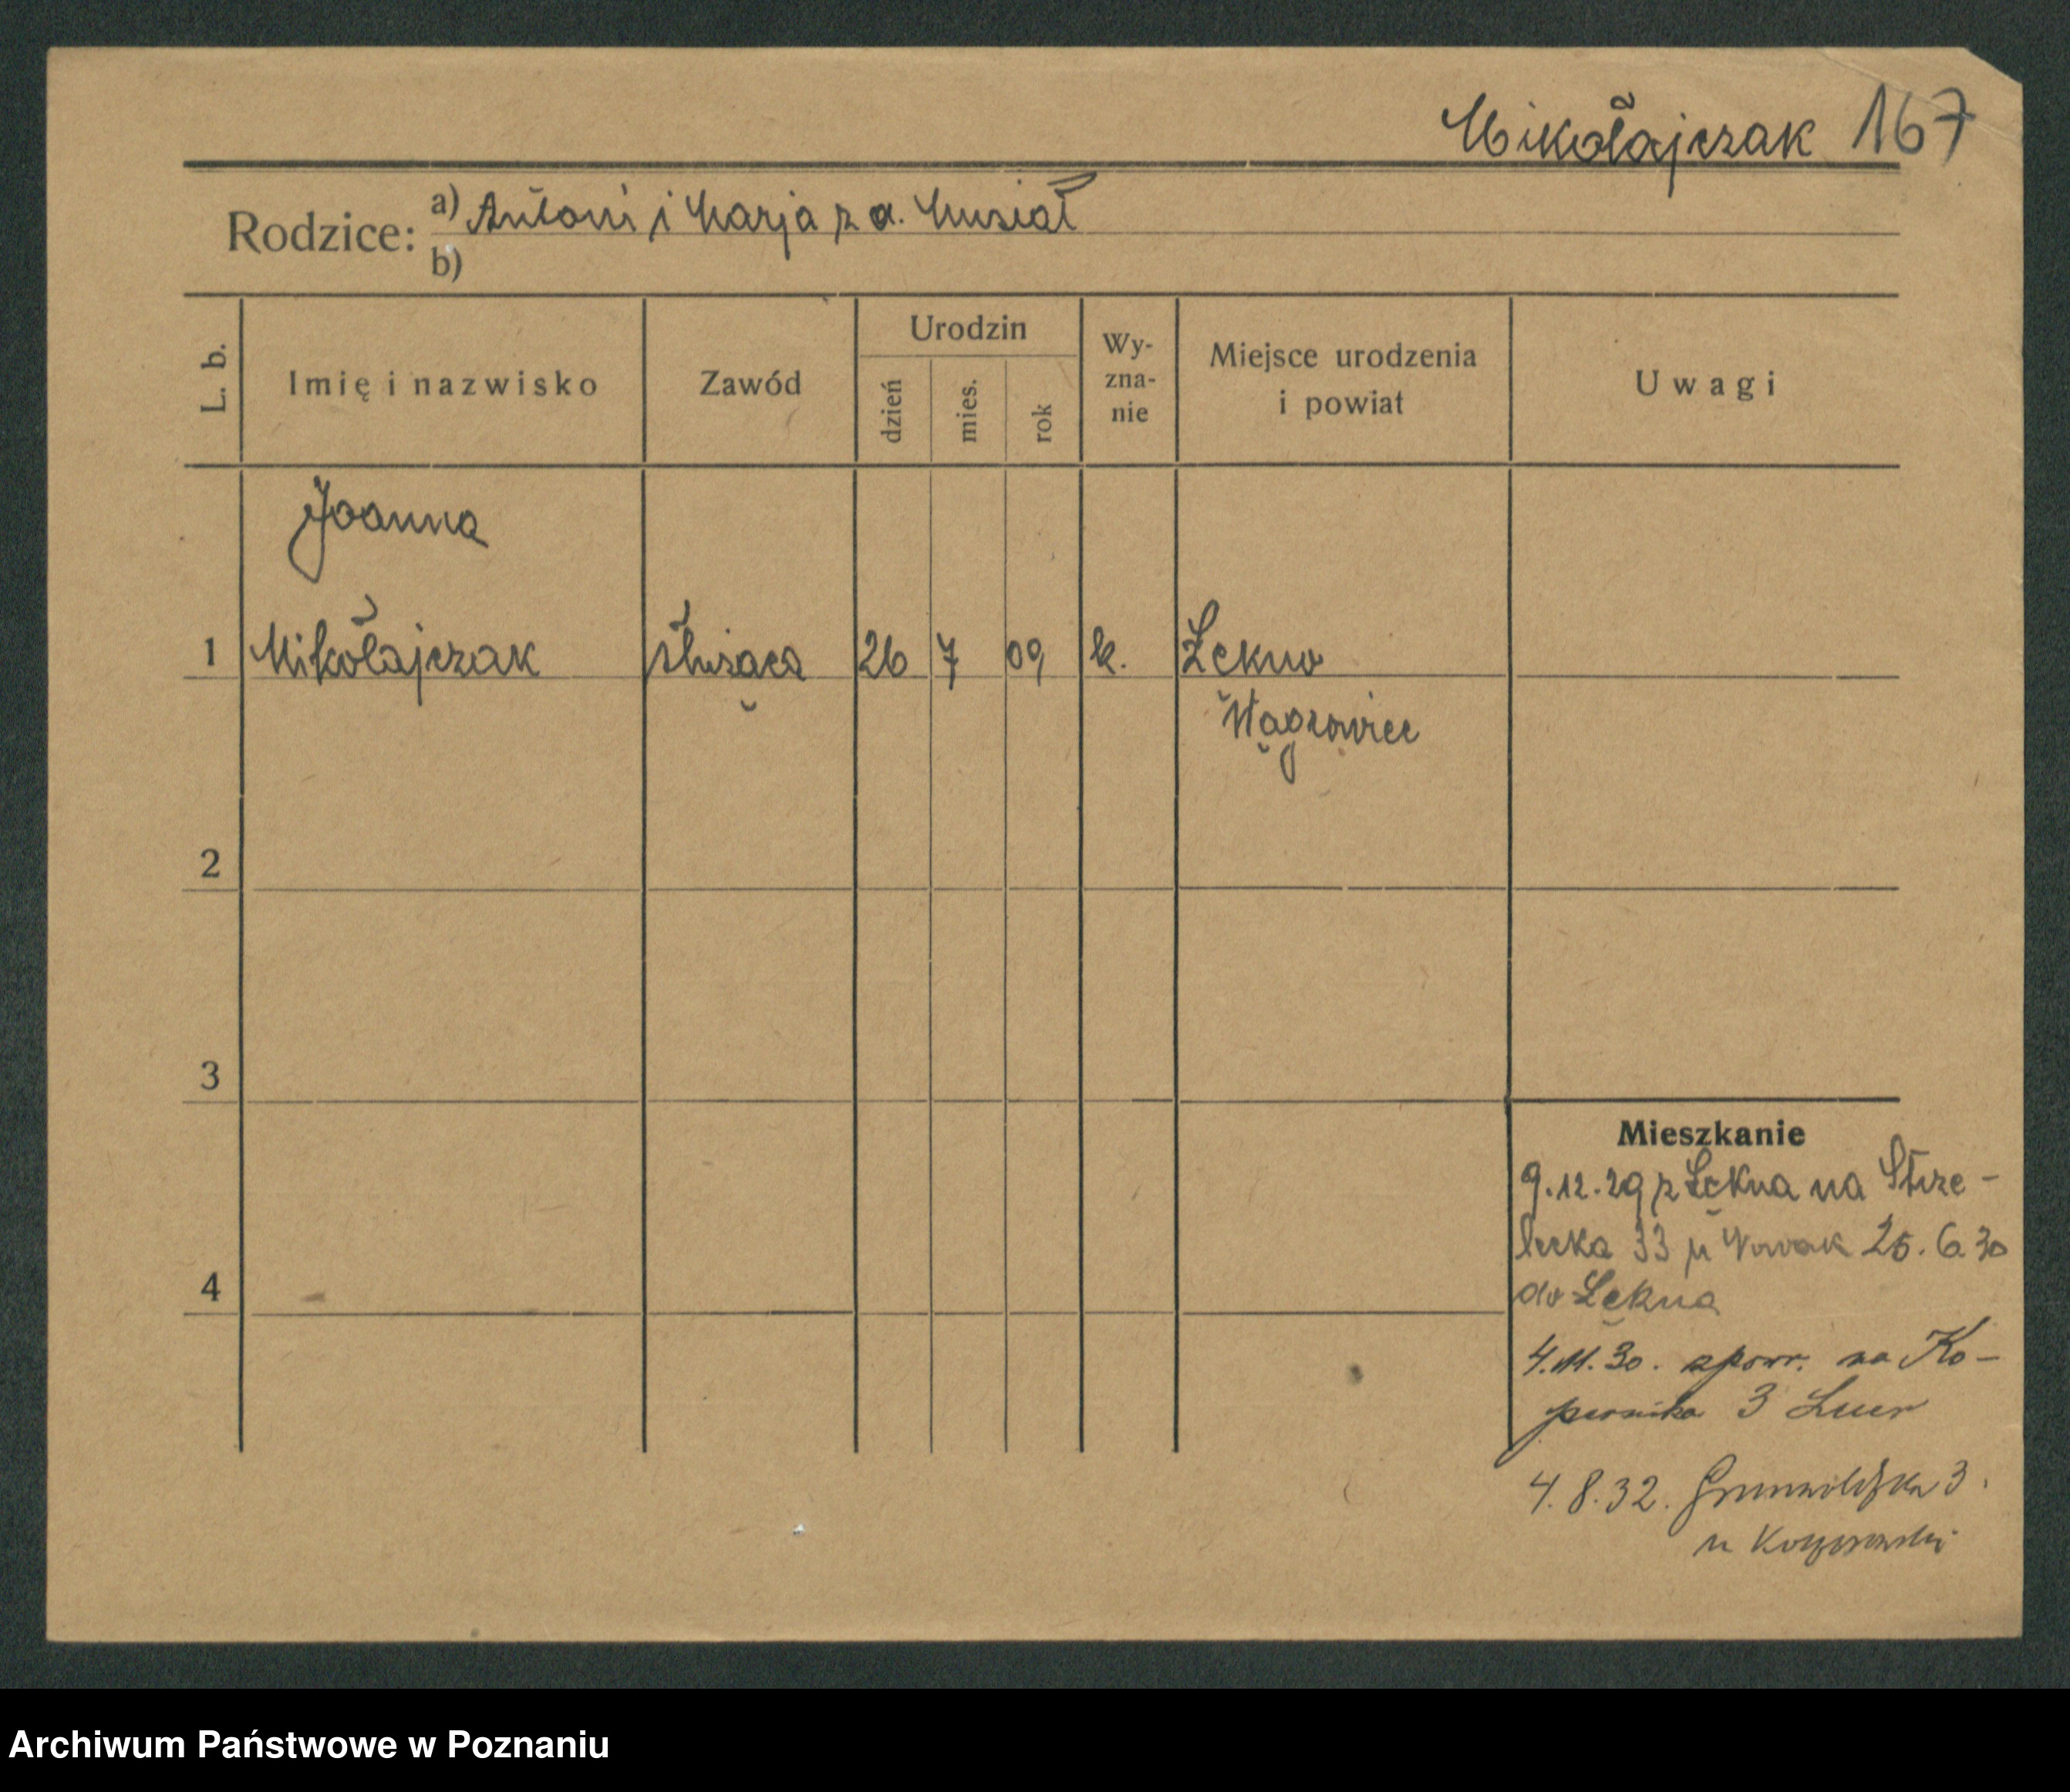 Mikołajczak 167
Rodzice: a) Antoni i Marja z d. Musiał
b)
L. b.
Imię i nazwisko
Zawód
Urodzin
dzień
mies.
rok
Wy-
zna-
nie
Miejsce urodzenia
i powiat
Uwagi
Joanna
1 Mikołajczak służąca 26 7 09 k. Łekno
Wągrowiec
2
3
4
Mieszkanie
9.12.29 z Łekna na Strze-
lecka 33 u Nowak 25.6.30
do Łekna
4.11.30. spowr. na Ko-
pernika 3
4.8.32. Grunwaldzka 3.
u
Archiwum Państwowe w Poznaniu